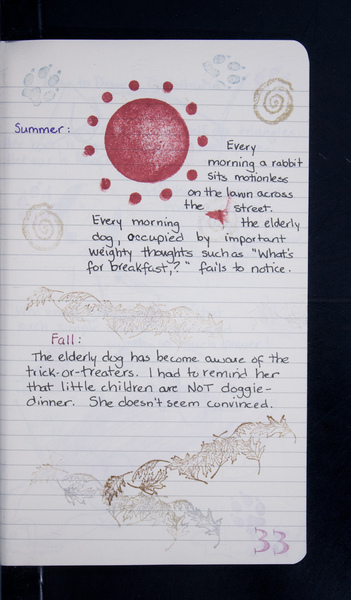 Summer:
Every
morning a rabbit
sits motionless
on the lawn across
the street.
Every morning the elderly
dog, occupied by important
weighty thoughts such as "What's
for breakfast,?" fails to notice.
Fall:
The elderly dog has become aware of the
trick-or-treaters. I had to remind her
that little children are NOT doggie-
dinner. She doesn't seem convinced.
33